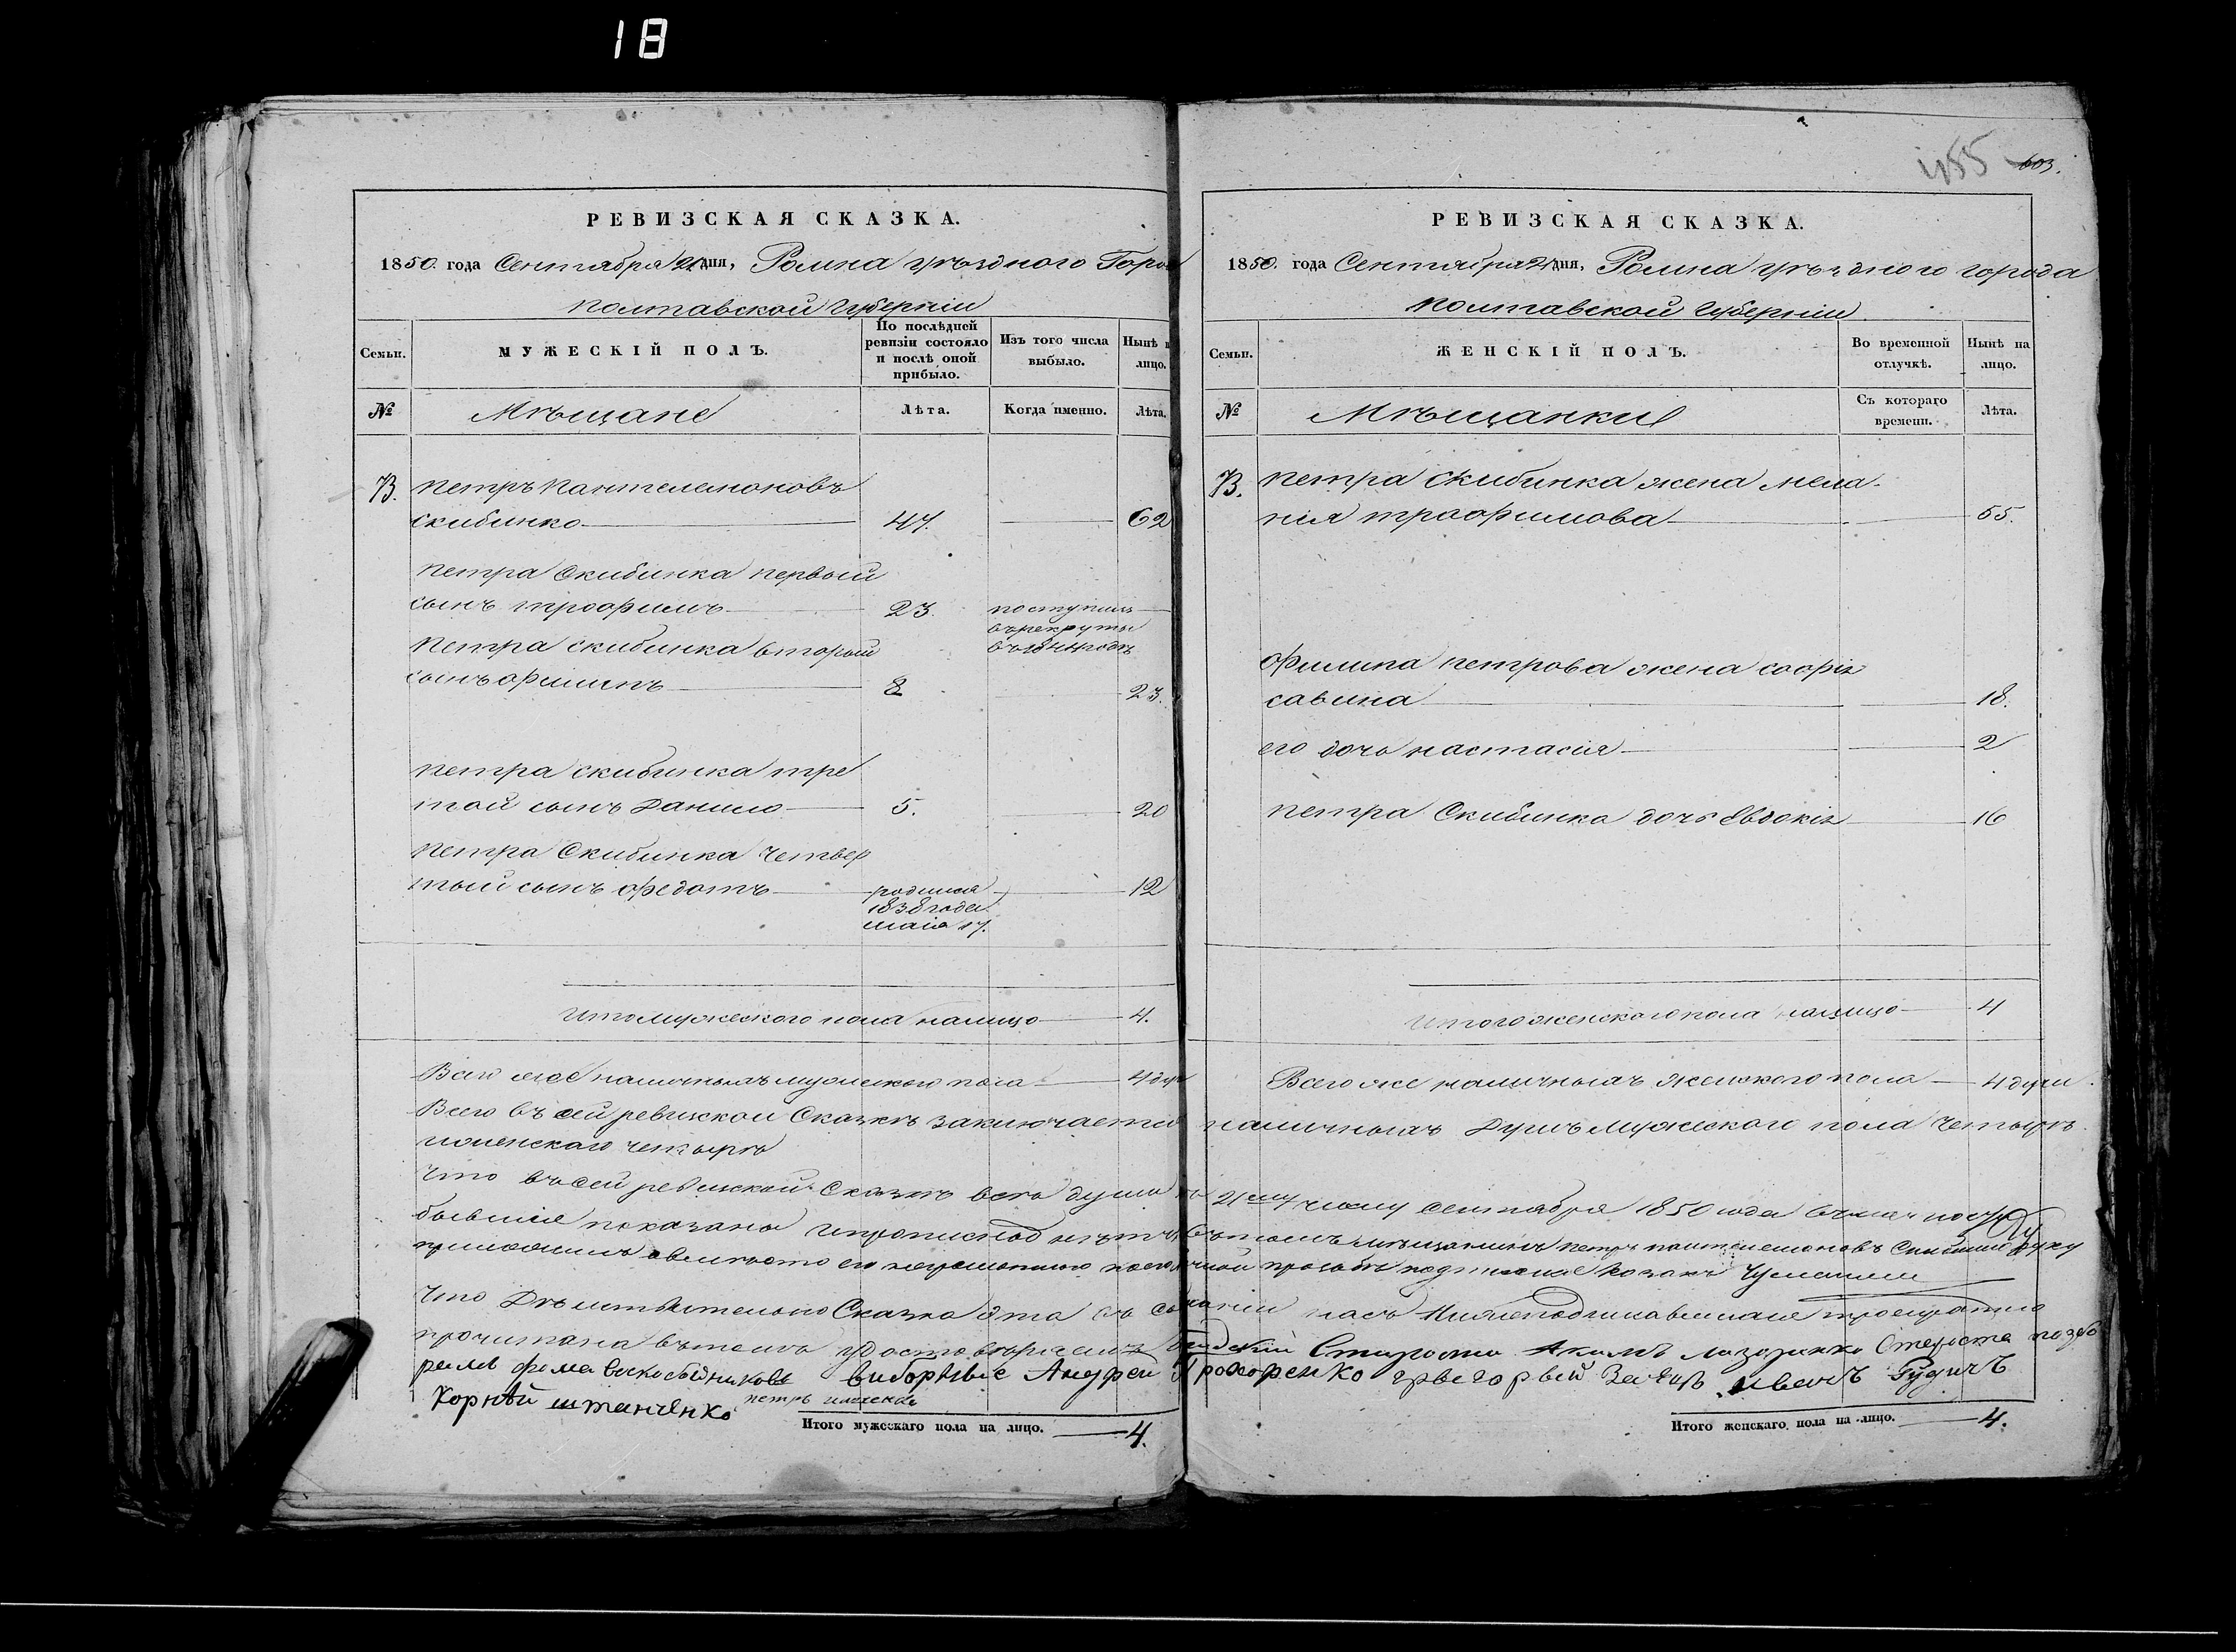 18
РЕВИЗСКАЯ СКАЗКА.
1850. года Сентября 21 дня, Ромна уѣзднаго Горо
полтавской губерніи
Семьи.
МУЖЕСКІЙ ПОЛЪ.
По послѣдней
ревизіи состояло
и послѣ оной
прибыло.
Изъ того числа
выбыло.
Нынѣ н
лицо.
№
Мѣщане
Лѣта.
Когда именно.
Лѣта.
73. петръ пантелемоновъ
скибинко 47. 62
петра Скибинка первый
сынъ трофимъ 23. поступилъ
въ рекруты
въ 1844 годѣ
петра скибинка вторый
сынъ филипъ 8 23.
петра скибинка тре
той сынъ Данило 5. 20
петра Скибинка четвер
тый сынъ федотъ родился 12
1838 года
маія 17.
Итого мужескаго пола налицо 4.
Всего же наличныхъ мужескаго пола 4 душ
РЕВИЗСКАЯ СКАЗКА.
1850. года Сентября 21 дня, Ромна уѣзднаго города
полтавской губерніи
Семьи.
ЖЕНСКІЙ ПОЛЪ.
Во временной
отлучкѣ.
Нынѣ на
лицо.
№
Мѣщанки
Съ котораго
времени.
Лѣта.
73. петра скибинка жена мела-
нія трофимова 55.
филипа петрова жена софія
савина 18.
его дочь настасія 2
петра Скибинка дочь Евдокія 16
итого женскаго пола налицо 4
Всего же наличныхъ женскаго пола 4 души.
Всего въ сей ревизской Сказкѣ заключается наличныхъ Душъ мужескаго пола четырѣ
и женскаго четырѣ
Что въ сей ревизской Сказкѣ всѣ души къ 21му числу сентября 1850 года
бывшіе показаны и прописныхъ нѣтъ въ томъ мѣщанинъ петръ пантелемоновъ Скибинко руку
приложилъ а вмѣсто его неграмотнаго по его личной прозьбѣ подписался козакъ
Что Дѣйствительно Сказка эта въ собраніи насъ Нижеподписавшихся
прочитана въ томъ удостовѣряемъ Градскій Староста Акимъ лазаренко Староста
фома выборные Андрей Прохоренко Иванъ Рудичъ
Корнѣй штанченко петръ
Итого мужескаго пола на лицо. 4.
Итого женскаго пола на лицо. 4.